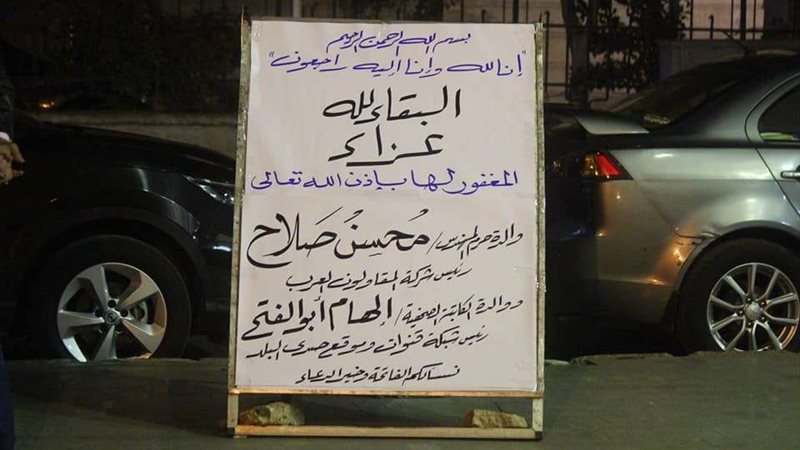 بسم الله الرحمن الرحيم
"إنا لله وإنا إليه راجعون"
البقاء لله
عزاء
المغفور لها بإذن الله تعالى
والدة حرم المهندس/ مُحسنُ صَلاح
رئيس شركة المقاولون العرب
ووالدة الكاتبة الصحفية/ إلهام أبو الفتح
رئيس شبكة قنوات وموقع صدى البلد
نسألكم الفاتحة وخير الدعاء